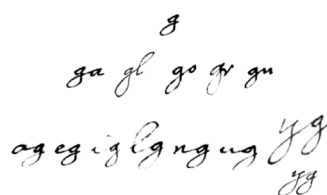 g
ga gl go gr gu
ag eg ig lg ng ug yg
yg